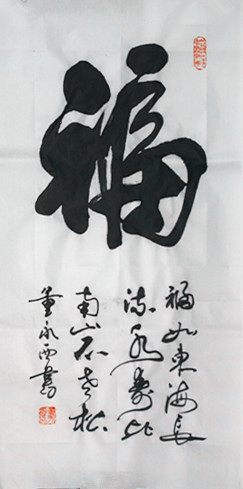 福
福如东海长
流水寿比
南山不老松
董永西书